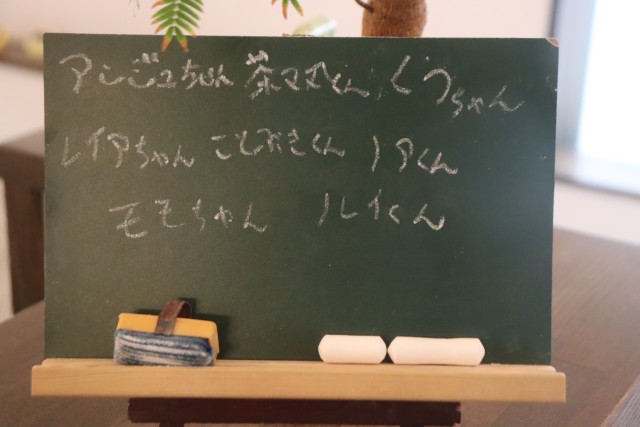 アンジュちゃん 茶々丸くん くうちゃん
レイアちゃん ことぶきくん ノアくん
モモちゃん ルイくん